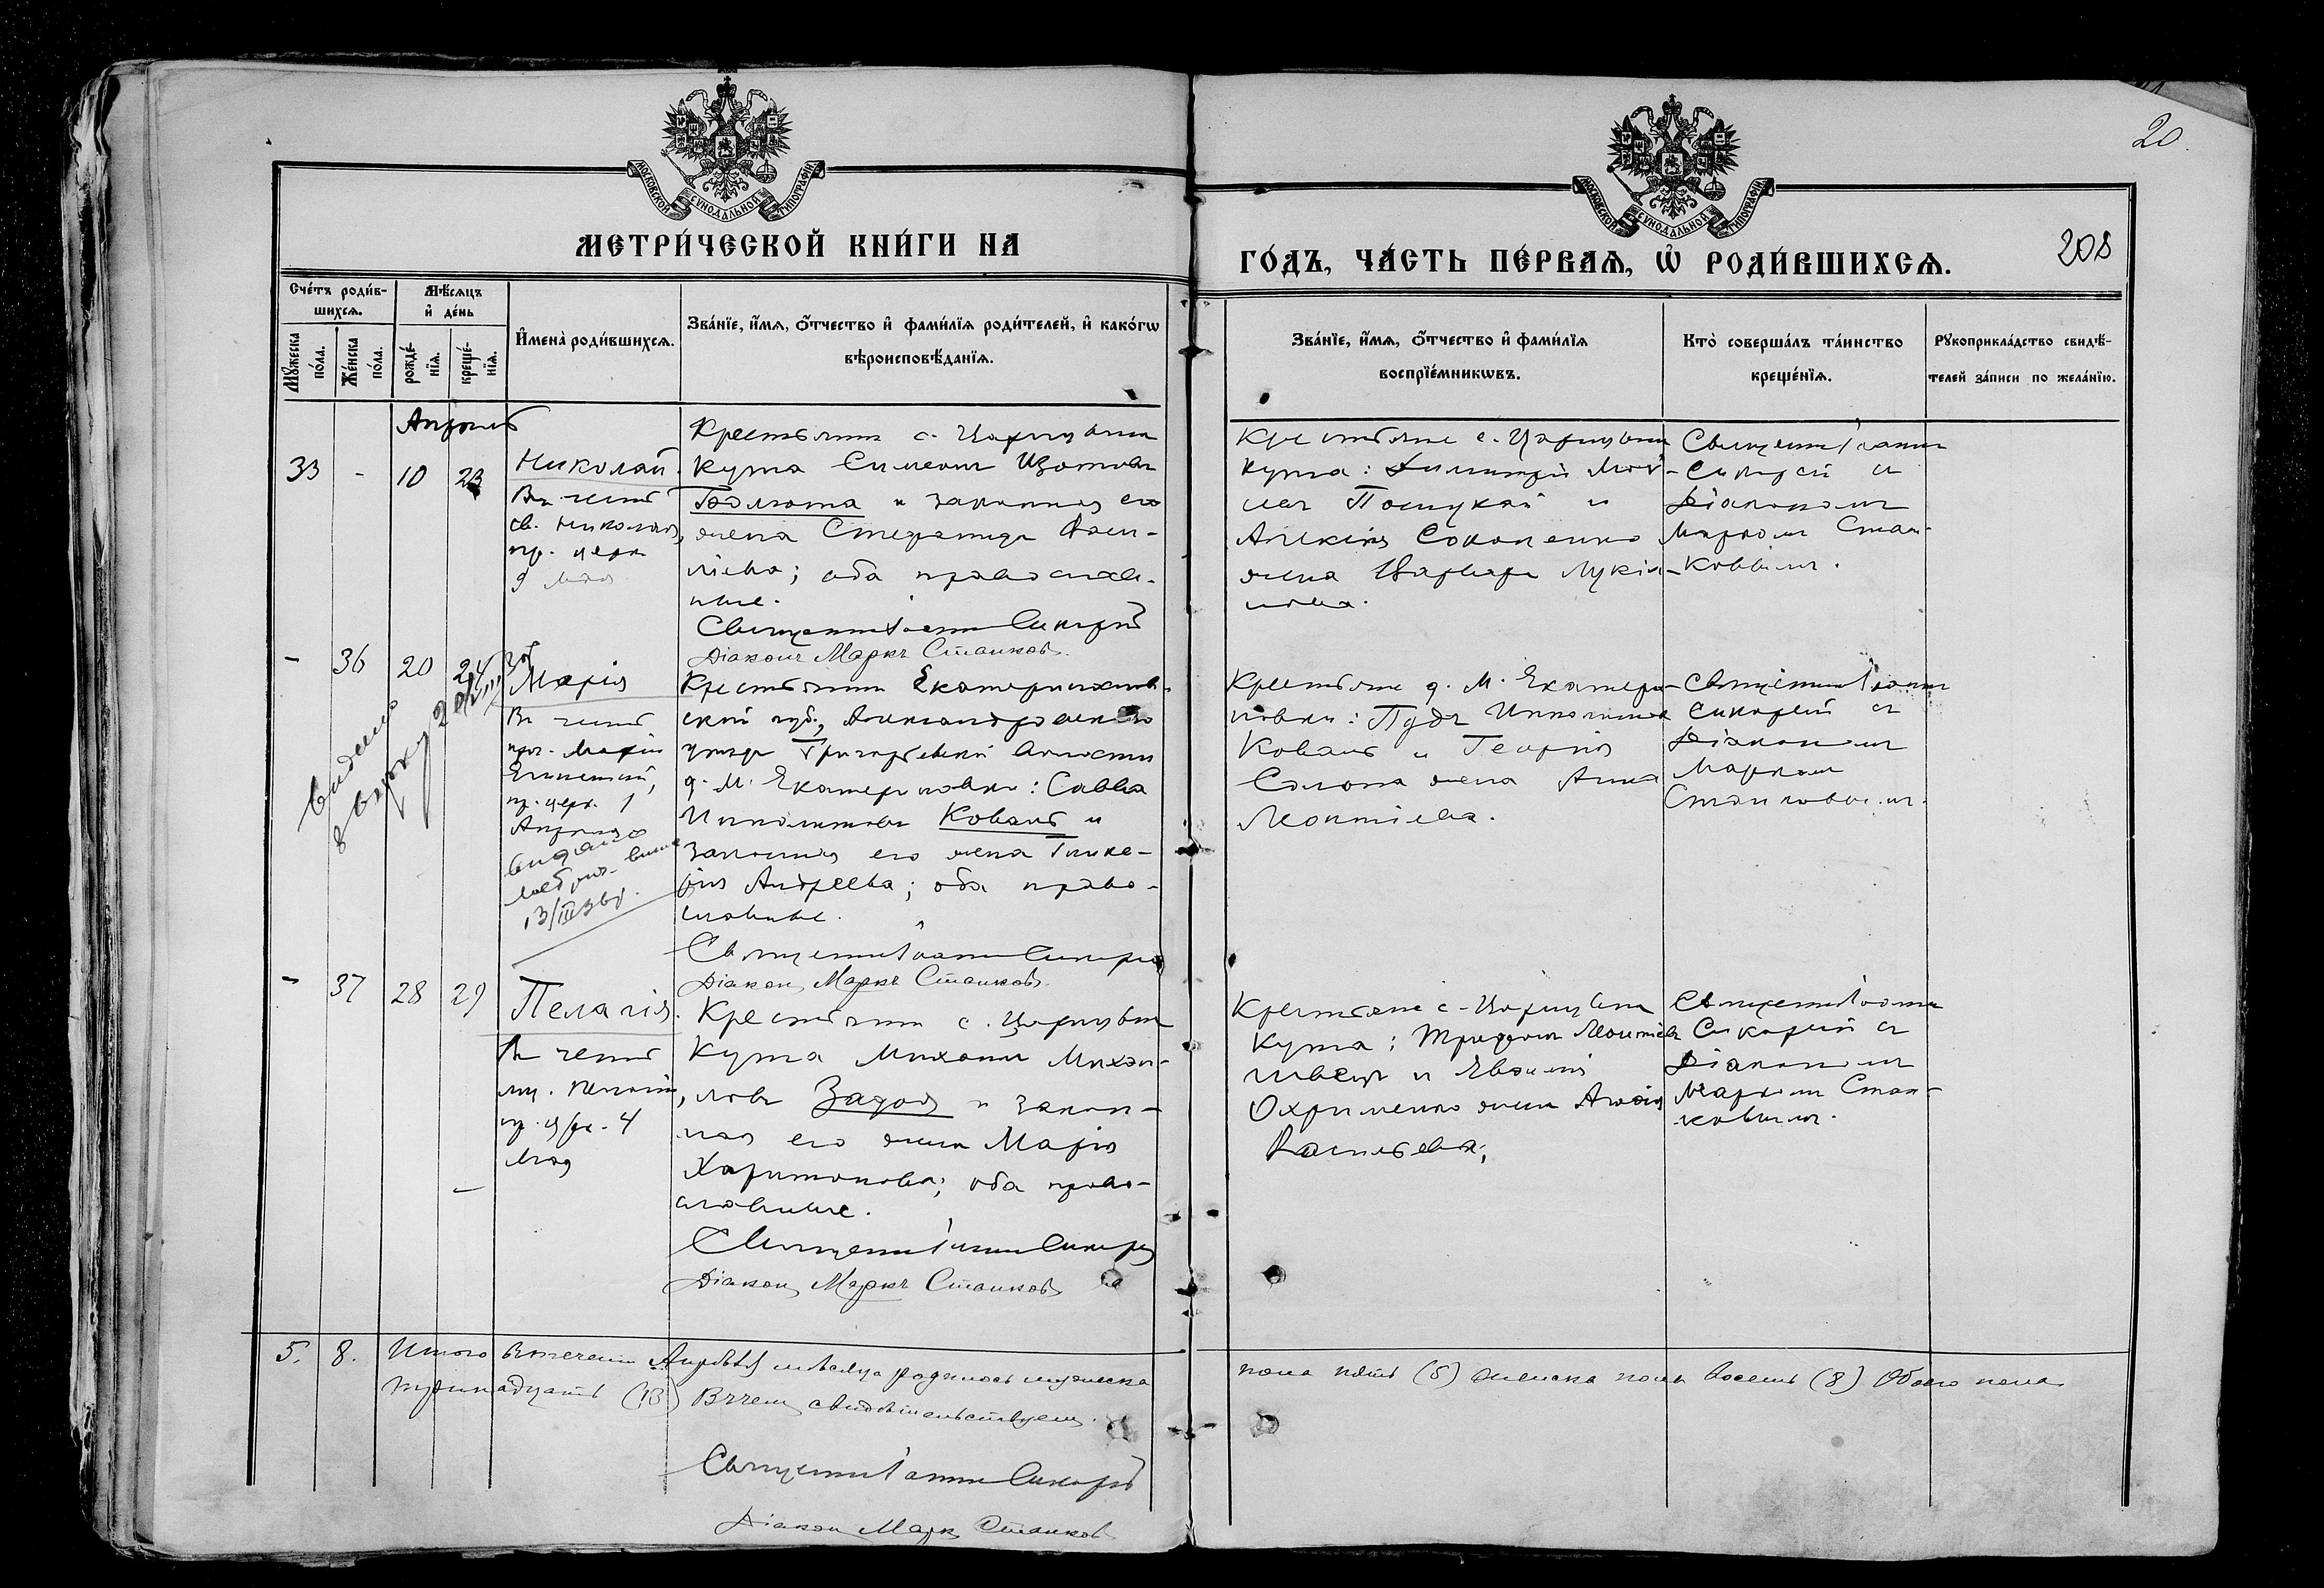 МОСКОВСКОЙ СУНОДАЛЬНОЙ ТИПОГРАФІИ
МЕТРИ́ЧЕСКОЙ КНИ́ГИ НА
Сче́тъ роди́в-
шихсѧ.
Мꙋ́жеска
по́ла.
Же́нска
по́ла.
Мѣ́сѧцъ
и҆ де́нь
рожде́-
нїѧ.
креще́-
нїѧ.
И҆мена̀ роди́вшихсѧ.
Зва́нїе, и҆́мѧ, ѻ҆́тчество и҆ фами́лїѧ роди́телей, и҆ како́гѡ
вѣроисповѣ́данїѧ.
Апрѣль
33 - 10 23
Николай.
Въ честь
св. Николая,
пр. церк.
9 мая
Крестьянинъ с. Царицына
Кута Симеонъ Изотовъ
и законная его
жена Стефанида Васи-
ліева; оба православ-
ные.
Священникъ Іоаннъ Сикорскій
Діаконъ Маркъ Станковъ.
- 36 20 24
Марія
Въ честь
преп. Маріи
Египетской,
пр. церк. 1
Апрѣля
13/III 36г.
Крестьянинъ Екатеринослав-
ской губ., Александровскаго
уѣзда Григорьевской волости
д. М. Екатериновки: Савва
Ипполитовъ Коваль и
законная его жена Глике-
рія Андреева; оба право-
славные.
Діаконъ Маркъ Станковъ.
- 37 28 29
Пелагія.
Въ честь
муч. Пелагіи,
пр. церк. 4
мая
Крестьянинъ с. Царицына
Кута Михаилъ Михаи-
ловъ и закон-
ная его жена Марія
Харитонова; оба право-
славные.
Діаконъ Маркъ Станковъ
5. 8. Итого въ теченіи Апрѣля мѣсяца родилось мужеска
тринадцать (13) Въ чемъ свидѣтельствуемъ.
Діаконъ Маркъ Станковъ
МОСКОВСКОЙ СУНОДАЛЬНОЙ ТИПОГРАФІИ
20.
208
ГО́ДЪ, ЧА́СТЬ ПЕ́РВАѦ, Ѡ҆ РОДИ́ВШИХСѦ.
Зва́нїе, и҆́мѧ, ѻ҆́тчество и҆ фами́лїѧ
воспрїе́мникѡвъ.
Кто̀ соверша́лъ та́инство
креще́нїѧ.
Рꙋкоприкла́дство свидѣ́-
телей за́писи по жела́нїю.
Крестьяне с. Царицына
Кута: Димитрій
и
жена Варвара Лукіа-
нова.
Священникъ Іоаннъ
Сикорскій съ
Діакономъ
Маркомъ Стан-
ковымъ.
Крестьяне д. М. Екатери-
новки: Пудъ Ипполитовъ
Коваль и Георгія
жена Анна
Леонтіева.
Священникъ Іоаннъ
Сикорскій съ
Діакономъ
Маркомъ
Станковымъ.
Крестьяне с. Царицына
Кута: Леонтіевъ
Швецъ и
Охрименко жена
Васильева;
Священникъ Іоаннъ
Сикорскій съ
Діакономъ
Маркомъ Стан-
ковымъ.
пола пять (5) женска пола восемь (8) Обоего пола